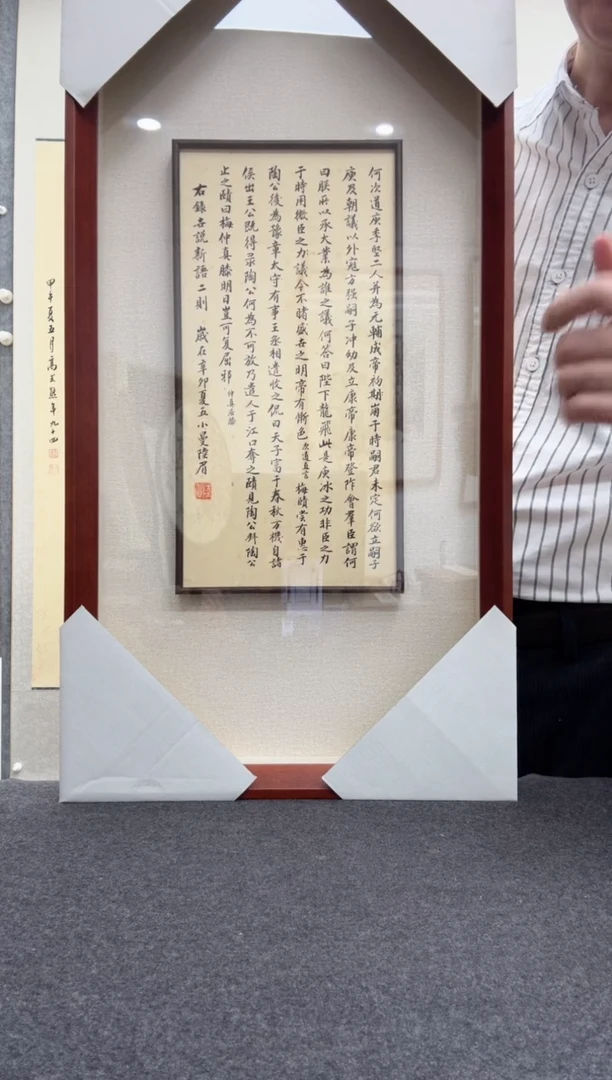 何次道庾季堅二人并為元輔成帝初期崩于時嗣君未定何欲立嗣子
庾及朝議以外寇方强嗣子冲幼及立康帝康帝登阼會羣臣謂何
曰朕所以承大業為誰之議何答曰陛下龍飛此是庾冰之功非臣之力
于時用微臣之力議今不睹盛世之明帝有慚色 次道直言 梅賾嘗有惠于
陶公後為豫章太守有事王丞相遣收之侃曰天子富于春秋万機自諸
侯出王公既得录陶公何為不可放乃遣人于江口奪之賾見陶公拜陶公
止之賾曰梅仲真膝明日豈可复屈邪
右錄世說新語二則 歲在辛卯夏五小曼陸眉
甲午夏五月高式熊年九十四